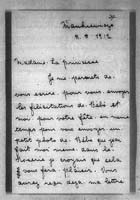 8.9.1912
Madame la princesse
Je me permets de
vous écrire, pour vous envoyer
les félicitations de Bébé et
moi pour votre fête, en même
temps pour vous envoyer un
petit photo de Bébé que j'ai
fait moi même dans la
je croyais que cela
vous fera plaisir. Vous
aurez reçu déjà ma lettre